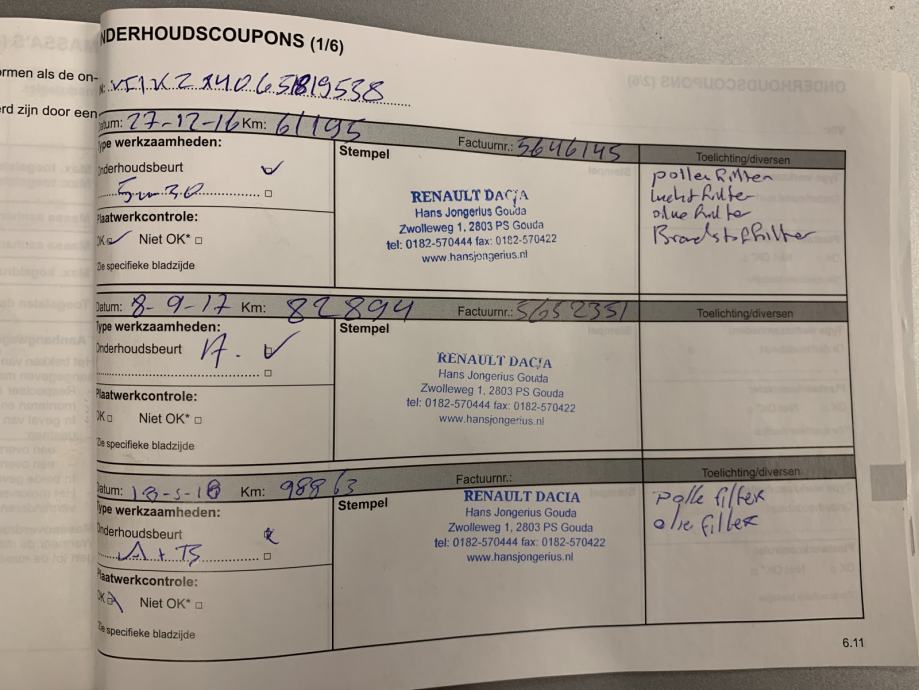 ONDERHOUDSCOUPONS (1/6)
ormen als de on-
rd zijn door een
N: VF1KZ140651819538
Datum: 27-12-16 Km: 61195 Factuurnr.: 5646145 Toelichting/diversen
Type werkzaamheden:
Stempel
Onderhoudsbeurt
5w30
Plaatwerkcontrole:
OK Niet OK*
Zie specifieke bladzijde
RENAULT DACIA
Hans Jongerius Gouda
Zwolleweg 1, 2803 PS Gouda
tel: 0182-570444 fax: 0182-570422
www.hansjongerius.nl
pollenfilter
luchtfilter
oliefilter
Brandstoffilter
Datum: 8-9-17 Km: 82894 Factuurnr.: 5652351 Toelichting/diversen
Type werkzaamheden:
Stempel
Onderhoudsbeurt A.
Plaatwerkcontrole:
OK Niet OK*
Zie specifieke bladzijde
RENAULT DACIA
Hans Jongerius Gouda
Zwolleweg 1, 2803 PS Gouda
tel: 0182-570444 fax: 0182-570422
www.hansjongerius.nl
Datum: 18-5-18 Km: 98863 Factuurnr.: Toelichting/diversen
Type werkzaamheden:
Stempel
Onderhoudsbeurt
A + TS
Plaatwerkcontrole:
OK Niet OK*
Zie specifieke bladzijde
RENAULT DACIA
Hans Jongerius Gouda
Zwolleweg 1, 2803 PS Gouda
tel: 0182-570444 fax: 0182-570422
www.hansjongerius.nl
polle filter
olie filter
6.11